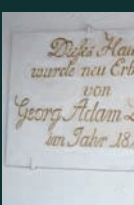 Dieses Hau
wurde neu Erb
von
Georg Adam
im Jahr 18